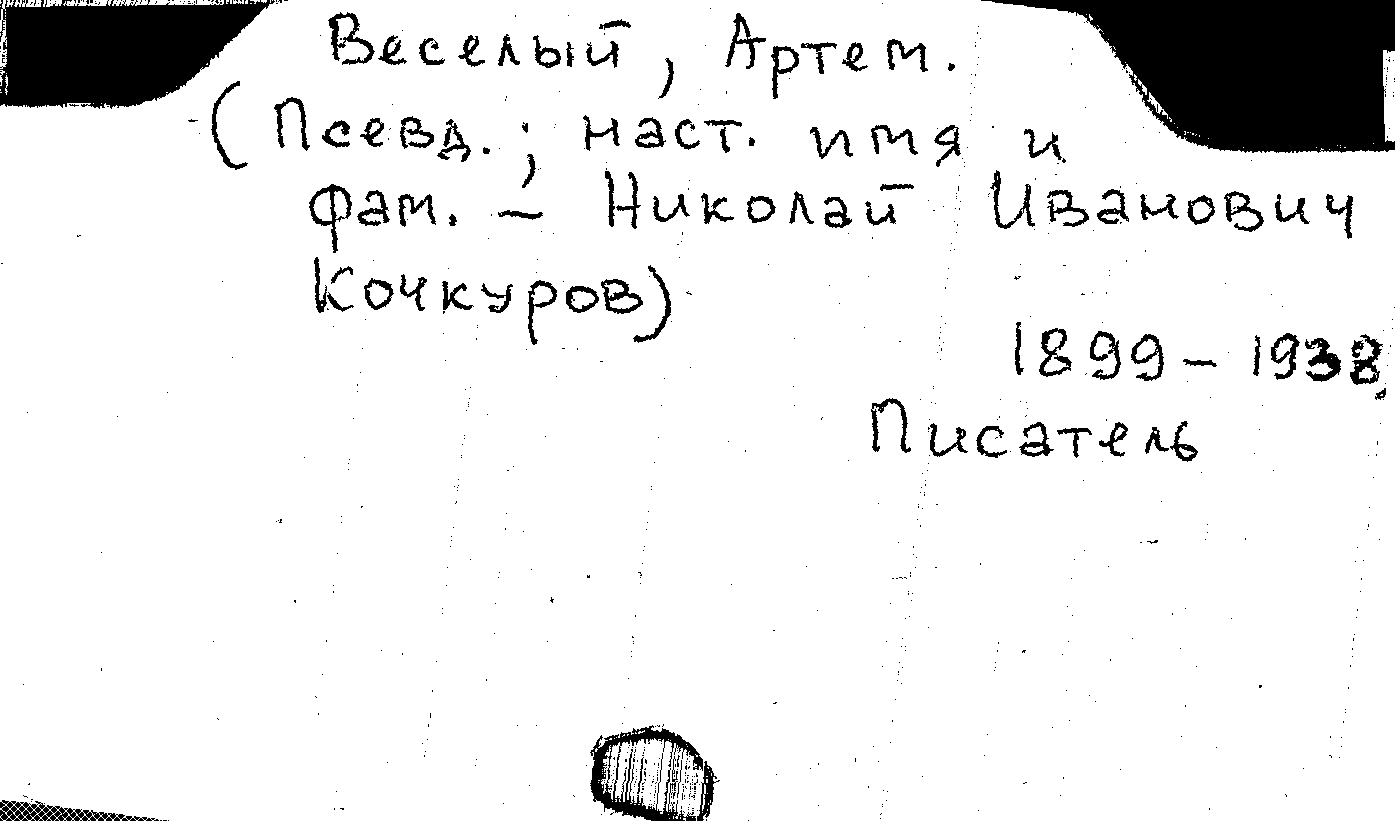 Веселый, Артем.
(Псевд.; наст. имя и
фам. – Николай Иванович
Кочкуров)
1899 – 1938.
Писатель